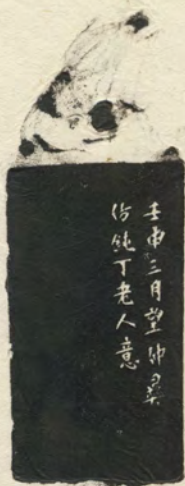 壬申三月望仲冕
仿鈍丁老人意